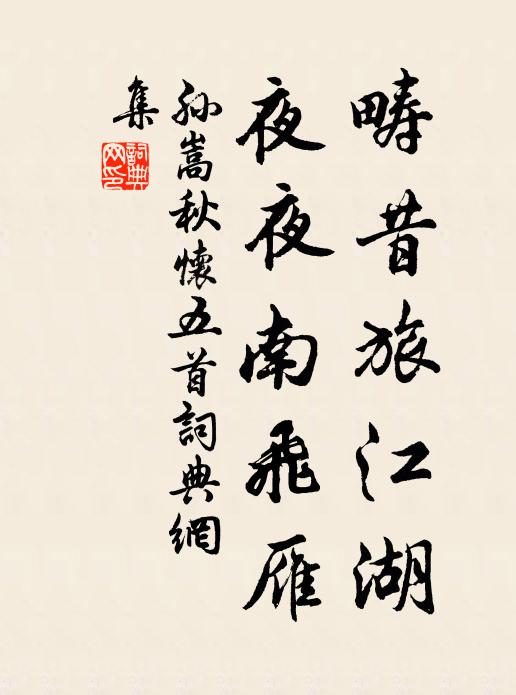 疇昔旅江湖
夜夜南飛雁
孫嵩秋懷五首詞典網
集
詞典
网印